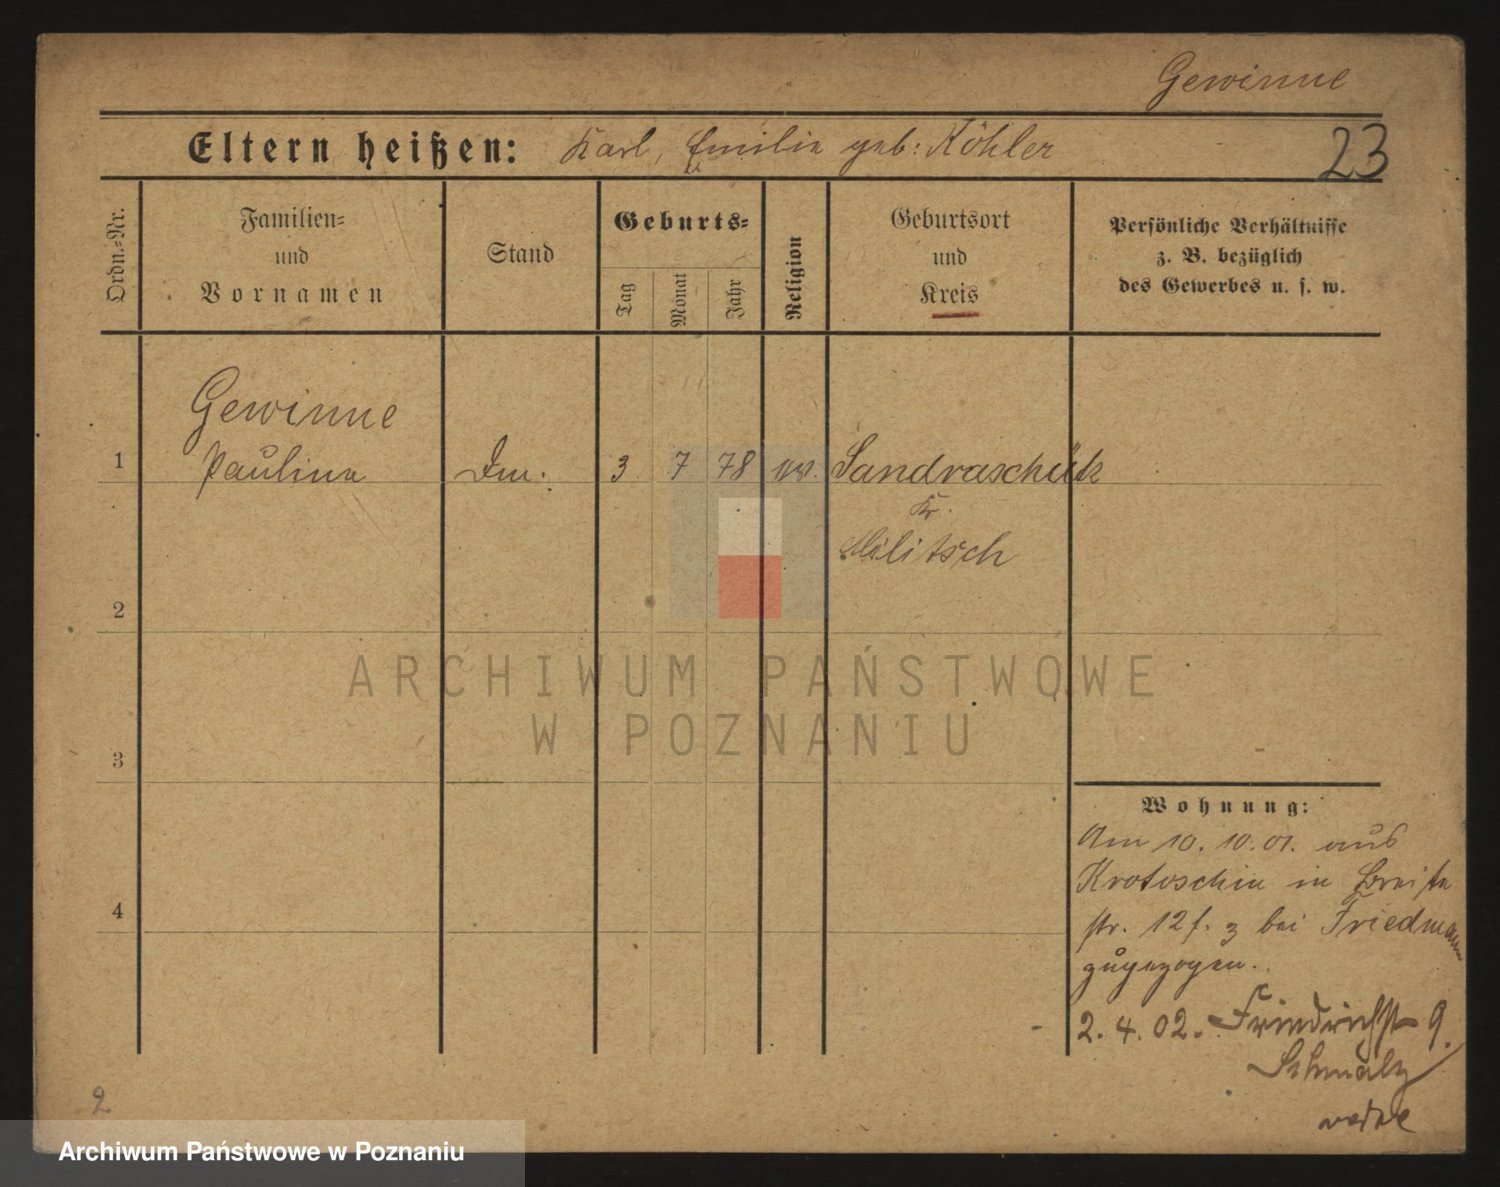 Gewinne
Eltern heißen: Karl, Emilie geb: Köhler
23
Ordn.-Nr.
Familien-
und
Vornamen
Stand
Geburts-
Tag
Monat
Jahr
Religion
Geburtsort
und
Kreis
Persönliche Verhältnisse
z. B. bezüglich
des Gewerbes u. s. w.
Gewinne
1 Pauline 3 7 78 ev. Sandraschütz
Kr.
Militsch
2
ARCHIWUM PAŃSTWOWE
W POZNANIU
3
Wohnung:
Am 10. 10. 01. aus
Krotoschin in Breite
str. 12 f. 3 bei Friedmann
zugezogen.
4
2. 4. 02. Friedrichst 9.
Schmalz
2
Archiwum Państwowe w Poznaniu